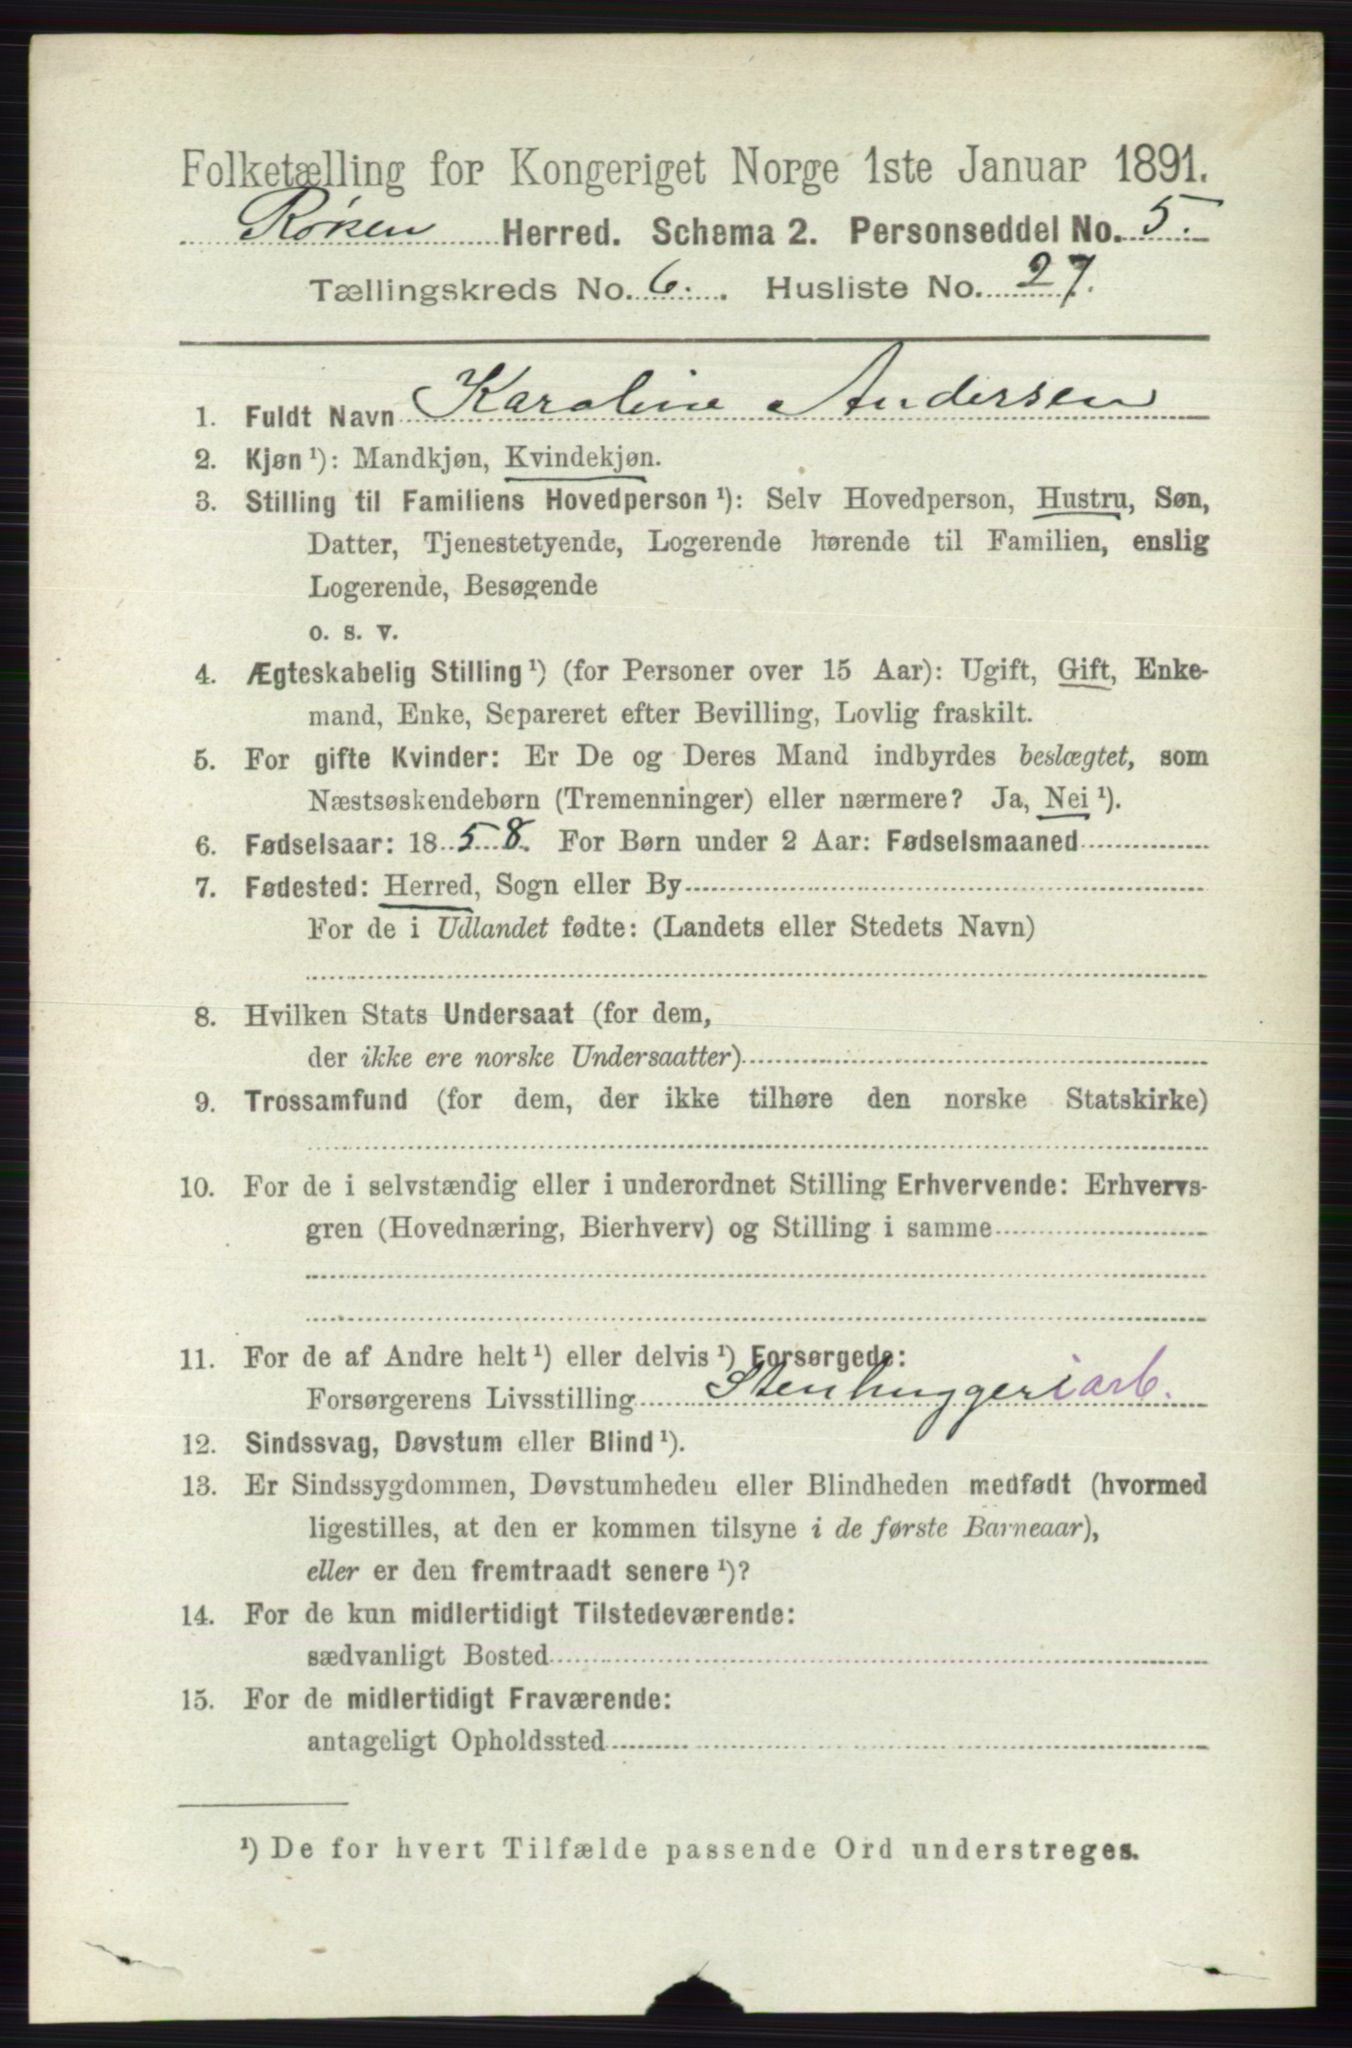 Folketælling for Kongeriget Norge 1ste Januar 1891.
Røken Herred. Schema 2. Personseddel No. 5.
Tællingskreds No. 6. Husliste No. 27.
1. Fuldt Navn Karoline Andersen
2. Kjøn ¹): Mandkjøn, Kvindekjøn.
3. Stilling til Familiens Hovedperson ¹): Selv Hovedperson, Hustru, Søn,
Datter, Tjenestetyende, Logerende hørende til Familien, enslig
Logerende, Besøgende
o. s. v.
4. Ægteskabelig Stilling ¹) (for Personer over 15 Aar): Ugift, Gift, Enke-
mand, Enke, Separeret efter Bevilling, Lovlig fraskilt.
5. For gifte Kvinder: Er De og Deres Mand indbyrdes beslægtet, som
Næstsøskendebørn (Tremenninger) eller nærmere? Ja, Nei ¹).
6. Fødselsaar: 1858. For Børn under 2 Aar: Fødselsmaaned
7. Fødested: Herred, Sogn eller By
For de i Udlandet fødte: (Landets eller Stedets Navn)
8. Hvilken Stats Undersaat (for dem,
der ikke ere norske Undersaatter)
9. Trossamfund (for dem, der ikke tilhøre den norske Statskirke)
10. For de i selvstændig eller i underordnet Stilling Erhvervende: Erhvervs-
gren (Hovednæring, Bierhverv) og Stilling i samme
11. For de af Andre helt ¹) eller delvis ¹) Forsørgede:
Forsørgerens Livsstilling Stenhuggeriarb.
12. Sindssvag, Døvstum eller Blind ¹).
13. Er Sindssygdommen, Døvstumheden eller Blindheden medfødt (hvormed
ligestilles, at den er kommen tilsyne i de første Barneaar),
eller er den fremtraadt senere ¹)?
14. For de kun midlertidigt Tilstedeværende:
sædvanligt Bosted
15. For de midlertidigt Fraværende:
antageligt Opholdssted
¹) De for hvert Tilfælde passende Ord understreges.